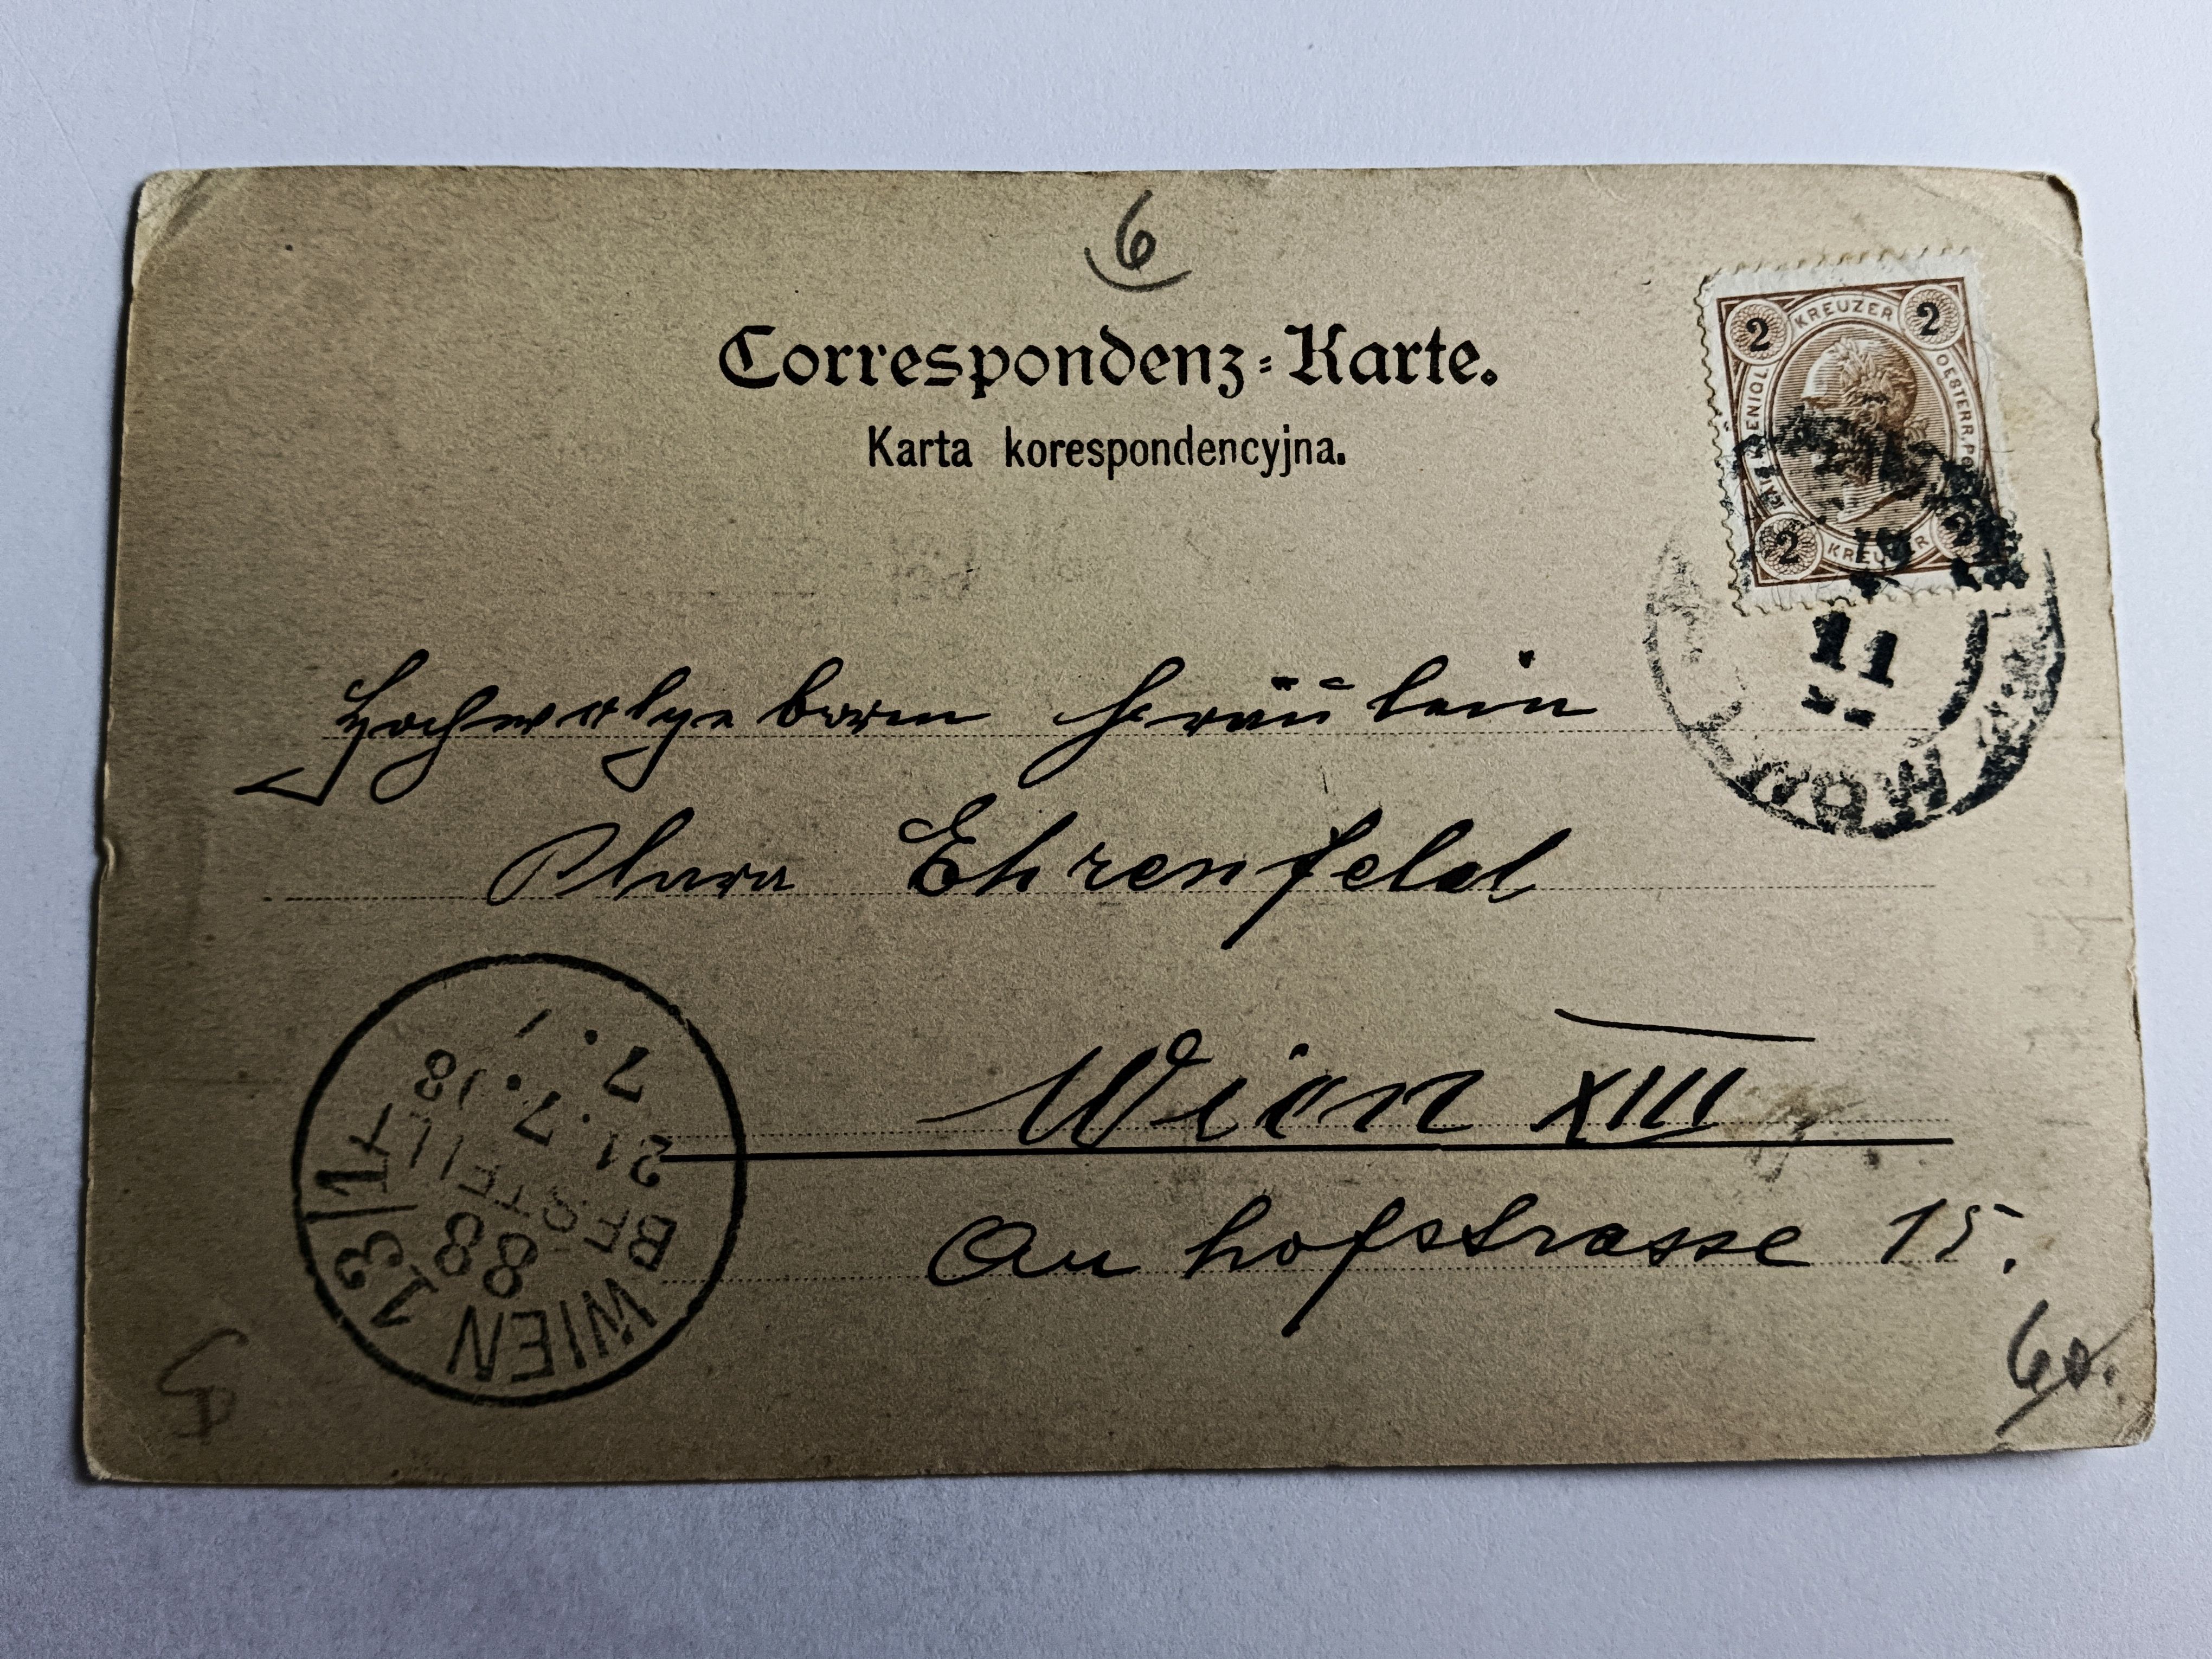 6
Correspondenz-Karte.
Karta korespondencyjna.
2 KREUZER 2
OESTERR. 
2 KREUZER
11
LWÓW
Hochwolgeborn Fräulein
Klara Ehrenfeld
Wien XIII
Au hofstrasse 15.
WIEN 13/1
88
BESTELLT
21.7.98
7.
60.